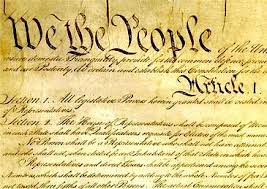 We the People of the Un
domestic Tranquility, provide for the common defence, pro
and our Posterity, do ordain and establish this Constitution for the
Article. I.
Section. 1. All legislative Powers herein granted shall be vested in
of Representatives.
Section. 2. The House of Representatives shall be composed of
in each State shall have the Qualifications requisite for Electors of the most
No Person shall be a Representative who shall not have
and who shall not, when elected, be an Inhabitant of that State in which
Representatives and direct Taxes shall be apportioned among the
which shall be determined by adding to the whole Number of
three fifths of all other Persons. The